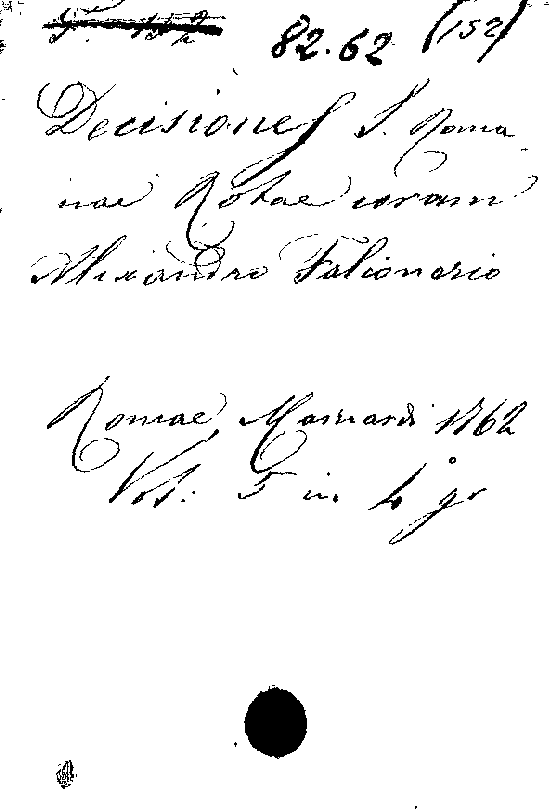 F. 152
82.62 (152)
Decisiones S. Roma-
nae Rotae coram
Alexandro Falconerio
Romae, Mainardi 1762
Vol: 5 in 4° gr